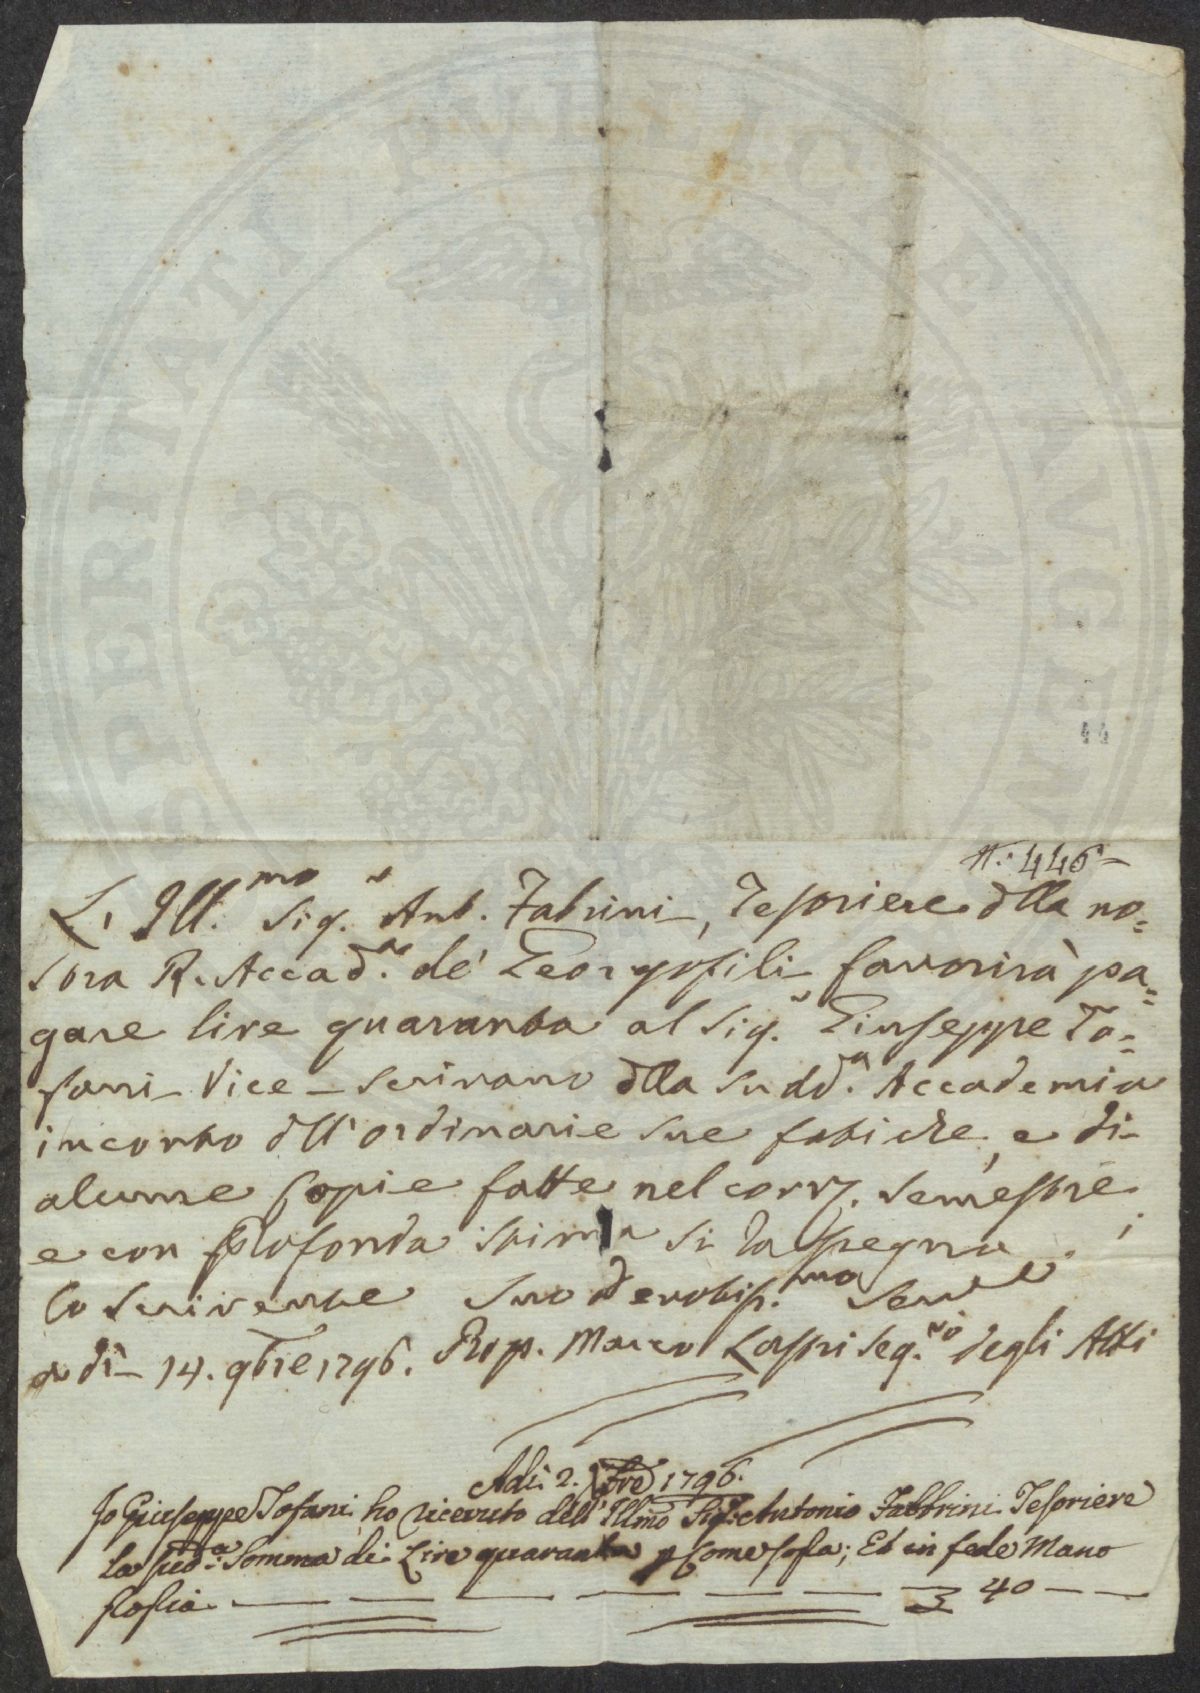 PROSPERITATI PUBLICAE AUGEN
44
N.° 446 –
L' Ill.mo Sig.r Ant. Fabrini, Tesoriere dlla no=
stra R. Accad.a de' Georgofili favorirà pa=
gare lire quaranta al Sig.r Giuseppe To=
fani Vice-scrivano dlla sudd.a Accademia
in conto dll' ordinarie sue fatiche, e di
alcune copie fatte nel corr. semestre
e con profonda stima si rassegna
Lo scrivente suo devotis.mo serv.e
a dì 14. 9bre 1796. Prop. Marco Lastri Seg.rio degli Atti
Adì 2. Xbre 1796.
Io Giuseppe Tofani ho ricevuto dall' Illmo Sig.r Antonio Fabbrini Tesoriere
la sud.a Somma di Lire quaranta p come sopa; Et in fede Mano
propia — — — — — — — £ 40 — —